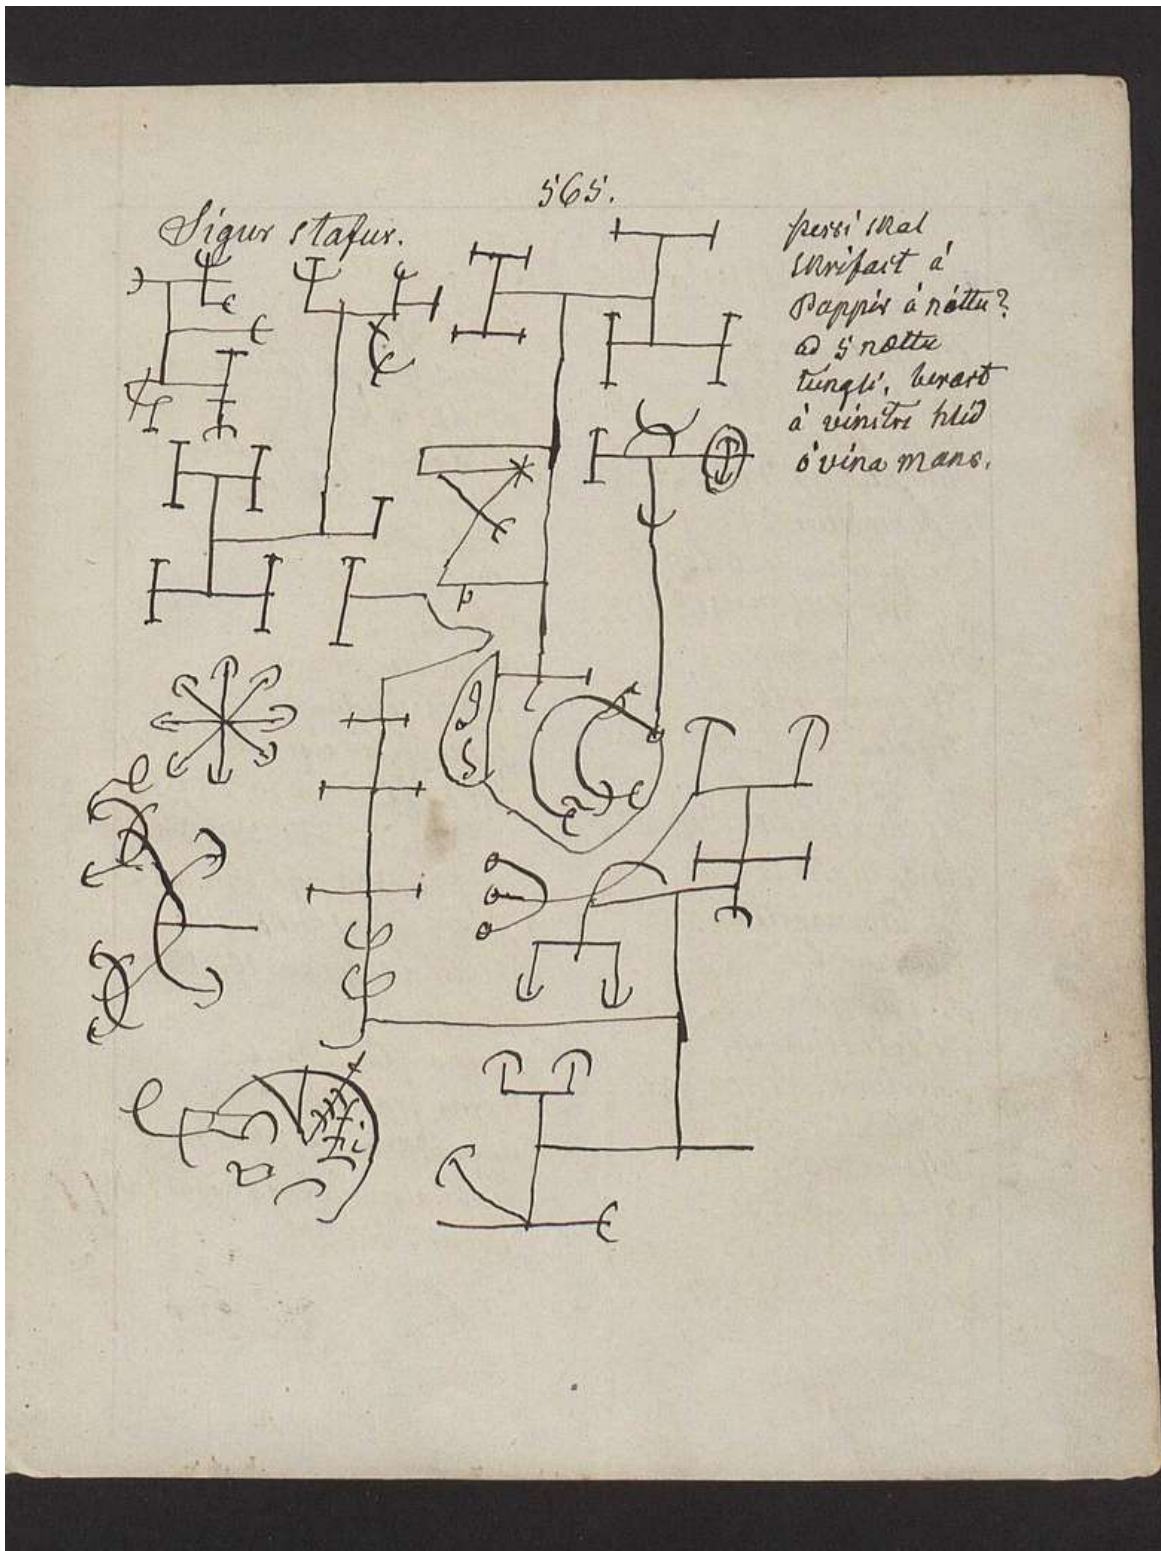 565.
Sigur stafur.
þessi skal
skrifast á
Pappír á nóttu?
ad 5 nættu
túngli, berast
á vinstri hlid
óvina mans.